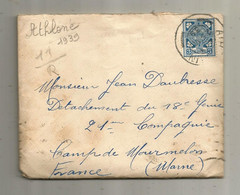 Athlone
1939
Monsieur Jean Daubresse
Détachement du 18e Génie
21e Compagnie
Camp de Mourmelon
France (Marne)